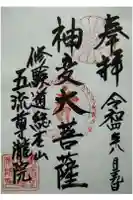 奉拝
令和四年八月三日
神変大菩薩
修験道総本山
五流尊瀧院